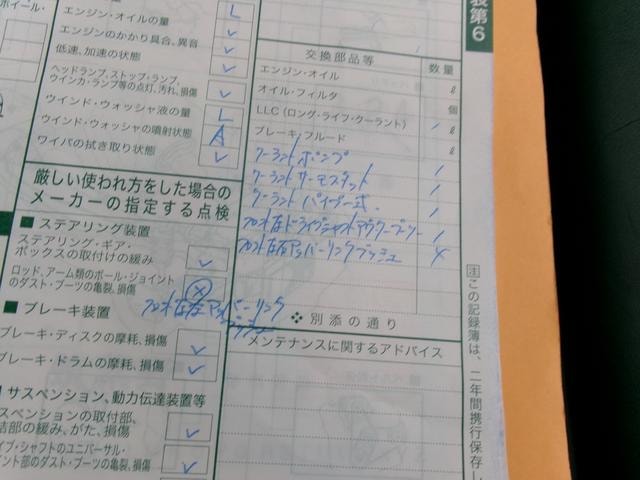 ホイール・
表第6
エンジン・オイルの量 L
エンジンのかかり具合、異音 ✓
低速、加速の状態 ✓
ヘッドランプ、ストップ・ランプ、
ウインカ・ランプ等の点灯、汚れ、損傷 ✓
ウインド・ウォッシャ液の量 L
ウインド・ウォッシャの噴射状態 A
ワイパの拭き取り状態 ✓
厳しい使われ方をした場合の
メーカーの指定する点検
■ステアリング装置
ステアリング・ギア・
ボックスの取付けの緩み ✓
ロッド、アーム類のボール・ジョイント
のダスト・ブーツの亀裂、損傷 ×
フロント左右アッパーリンク
ブッシュ
■ブレーキ装置
ブレーキ・ディスクの摩耗、損傷 ✓
ブレーキ・ドラムの摩耗、損傷 ✓
サスペンション、動力伝達装置等
スペンションの取付部、
結部の緩み、がた、損傷 ✓
イブ・シャフトのユニバーサル・
イント部のダスト・ブーツの亀裂、損傷 ✓
交換部品等 数量
エンジン・オイル ℓ
オイル・フィルタ 個
LLC(ロング・ライフ・クーラント) ℓ
ブレーキ・フルード ℓ
クーラントポンプ 1
クーラントサーモスタット 1
クーラントパイプ一式 1
フロント左ドライブシャフトアウターブーツ 1
フロント左右アッパーリンクブッシュ 4
❖ 別添の通り
メンテナンスに関するアドバイス
注 この記録簿は、二年間携行保存し